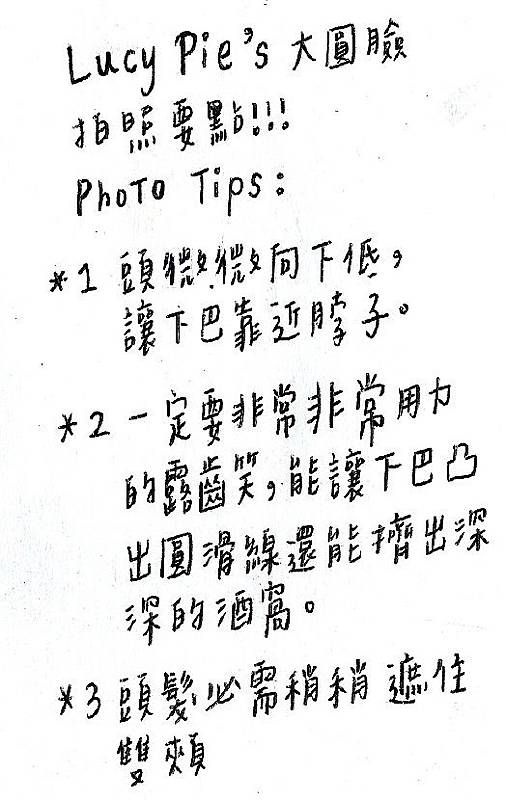 Lucy Pie's 大圓臉
拍照要點!!!
PhoTo Tips:
*1 頭微微向下低,
讓下巴靠近脖子。
*2 一定要非常非常用力
的露齒笑,能讓下巴凸
出圓滑線還能擠出深
深的酒窩。
*3 頭髮必需稍稍遮住
雙頰